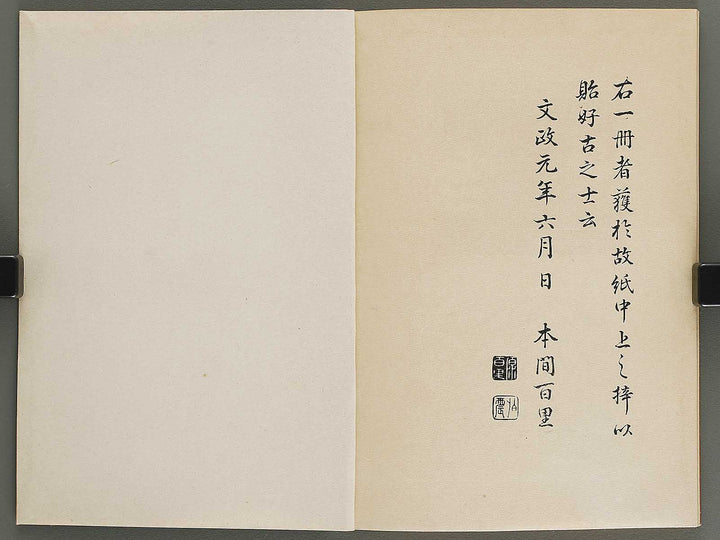 右一冊者獲於故紙中上之梓以
貽好古之士云
文政元年六月日 本間百里